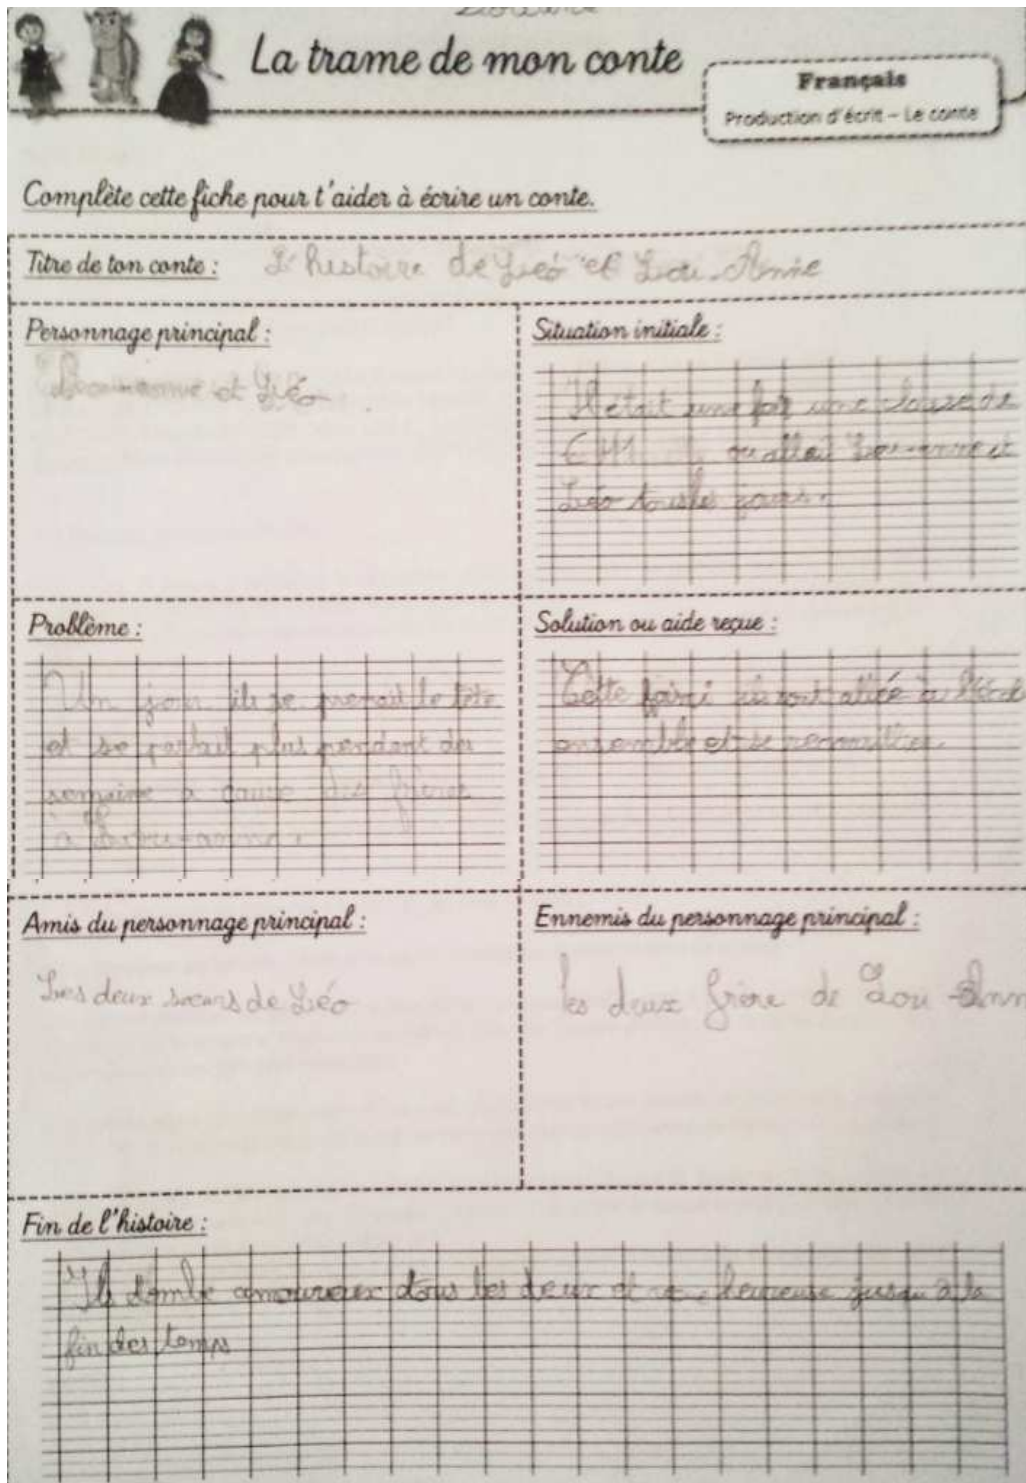 La trame de mon conte
Français
Production d'écrit – Le conte
Complète cette fiche pour t'aider à écrire un conte.
Titre de ton conte : L'histoire de Léo et Lou-Anne
Personnage principal :
Lou-anne et Léo
Situation initiale :
Il était une foi une classe de
CM1 ou allait Lou-anne et
Léo tous les jours.
Problème :
Un jour ils se prenait la tête
et se parlait plus pendant des
semaine a cause des frères
à Lou-anne.
Solution ou aide reçue :
Cette ils sont allée à
ensemble et se
Amis du personnage principal :
Les deux sœurs de Léo
Ennemis du personnage principal :
les deux frère de Lou-Ann
Fin de l'histoire :
Ils tombe amoureux tous les deux et heureuse jusqu'à la
fin des temps